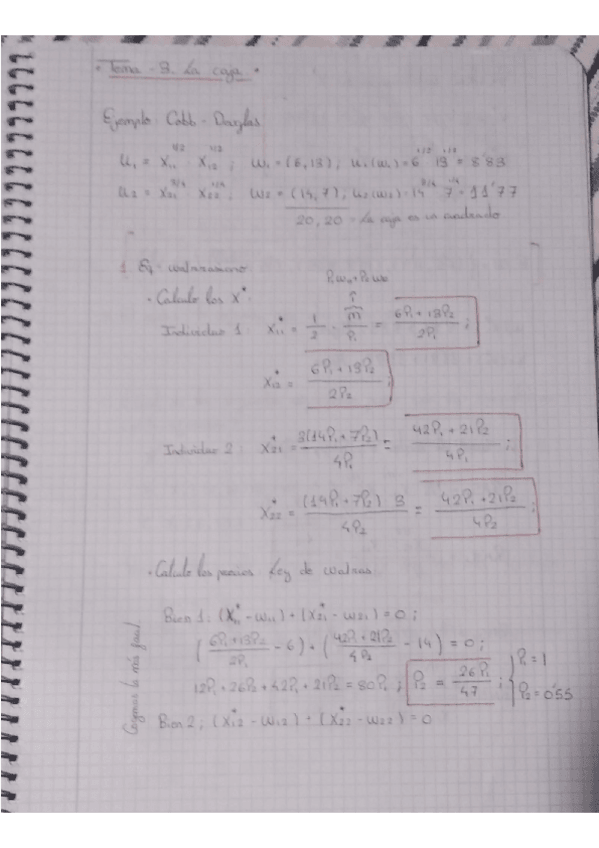 · Tema - 3. La caja. ·
Ejemplo: Cobb - Douglas
U₁ = X₁₁^1/2 X₁₂^1/2 ; W₁ = (6,13) ; U₁(W₁) = 6^1/2 13^1/2 = 8'83
U₂ = X₂₁^3/4 X₂₂^1/4 ; W₂ = (14,7) ; U₂(W₂) = 14^3/4 7^1/4 = 11'77
20, 20 - La caja es un cuadrado
1. Eq. walrasiano
· Calculo los X*
Individuo 1: X₁₁* = 1/2 · m/P₁ = (6P₁ + 13P₂)/2P₁ ;
X₁₂* = (6P₁ + 13P₂)/2P₂ ;
Individuo 2: X₂₁* = 3(14P₁ + 7P₂)/4P₁ = (42P₁ + 21P₂)/4P₁ ;
X₂₂* = (14P₁ + 7P₂) 3/4P₂ = (42P₁ + 21P₂)/4P₂ ;
· Calculo los precios Ley de Walras
Bien 1: (X₁₁* - W₁₁) + (X₂₁* - W₂₁) = 0 ;
((6P₁ + 13P₂)/2P₁ - 6) + ((42P₁ + 21P₂)/4P₂ - 14) = 0 ;
12P₁ + 26P₂ + 42P₁ + 21P₂ = 80P₁ ; P₂ = 26P₁/47 ; { P₁ = 1
P₂ = 0'55
Bien 2: (X₁₂* - W₁₂) + (X₂₂* - W₂₂) = 0